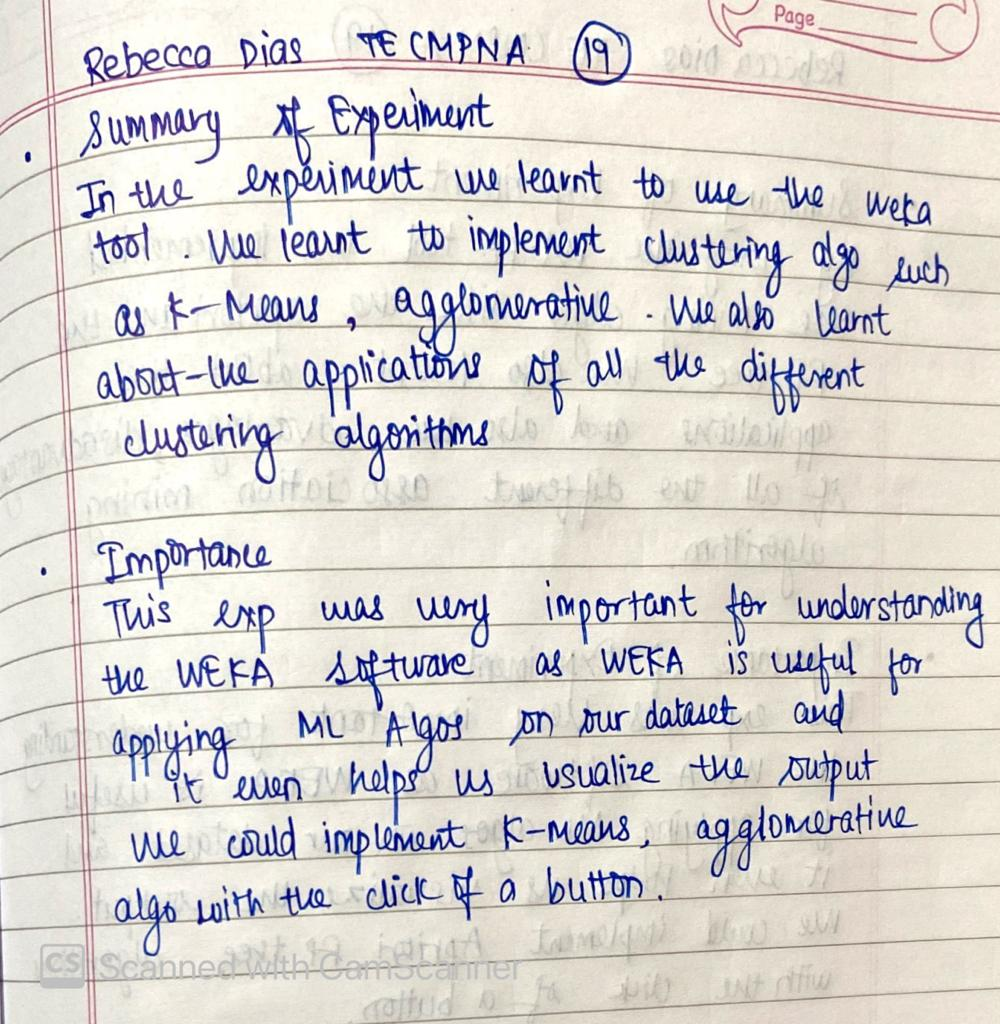 Page
Rebecca Dias TE CMPNA 19
• Summary of Experiment
In the experiment we learnt to use the weka
tool. We learnt to implement clustering algo such
as K-Means, agglomerative. We also learnt
about the applications of all the different
clustering algorithms
• Importance
This exp was very important for understanding
the WEKA software as WEKA is useful for
applying ML Algos on our dataset and
it even helps us usualize the output
We could implement K-means, agglomerative
algo with the click of a button.
CS Scanned with CamScanner